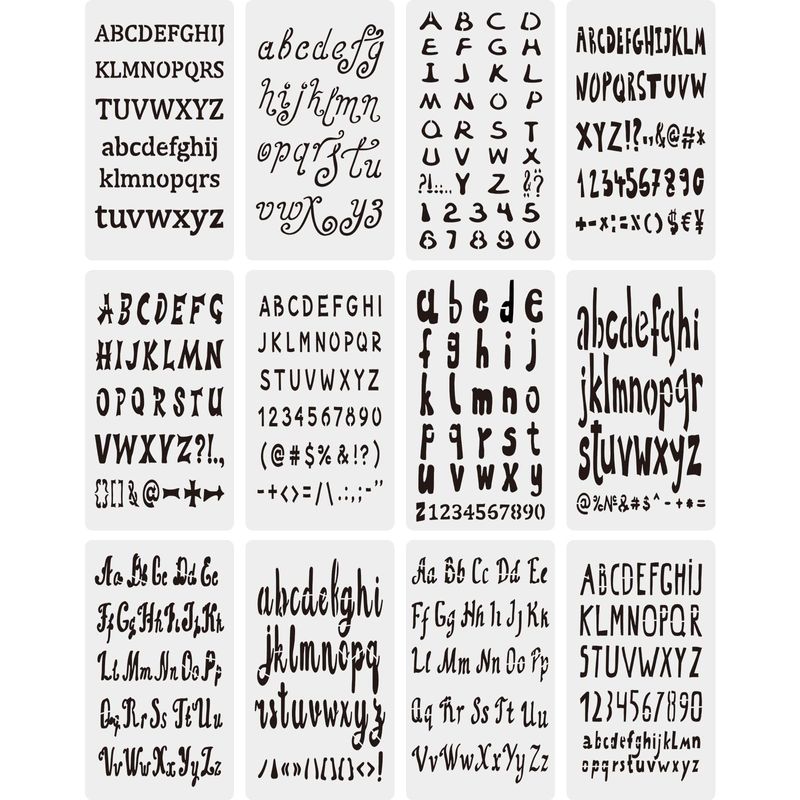 ABCDEFGHIJ
KLMNOPQRS
TUVWXYZ
abcdefghij
klmnopqrs
tuvwxyz
abcdefg
hijklmn
opqrstu
vwxyz
A B C D
E F G H
I J K L
M N O P
Q R S T
U V W X
?!:... Y Z &?
1 2 3 4 5
6 7 8 9 0
ABCDEFGHIJKLM
NOPQRSTUVW
XYZ!?",&@#*
1234567890
+-×:=%()$€¥
ABCDEFG
HIJKLMN
OPQRSTU
VWXYZ?!.,
{}[]&@
ABCDEFGHI
JKLMNOPQR
STUVWXYZ
1234567890
(@#$%&!?)
-+<>=/\.:,;-"
a b c d e
f g h i j
k l m n o
p q r s t
u v w x y
z1234567890
abcdefghi
jklmnopqr
stuvwxyz
@%№&#$^-+*=
Aa Bb Cc Dd Ee
Ff Gg Hh Ii Jj Kk
Ll Mm Nn Oo Pp
Qq Rr Ss Tt Uu
Vv Ww Xx Yy Zz
abcdefghi
jklmnopq
rstuvwxyz
/\«»/\()[]<>!
Aa Bb Cc Dd Ee
Ff Gg Hh Ii Jj Kk
Ll Mm Nn Oo Pp
Qq Rr Ss Tt Uu
Vv Ww Xx Yy Zz
ABCDEFGHIJ
KLMNOPQR
STUVWXYZ
1234567890
abcdefghijklmn
opqrstuvwxyz